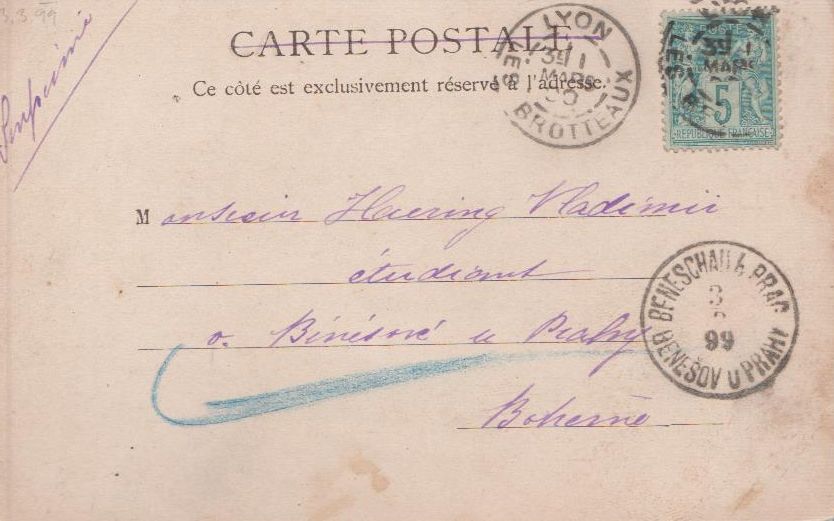 3.3.99
Imprimé
CARTE POSTALE
Ce côté est exclusivement réservé à l'adresse.
LYON
3E 1
MARS
LES BROTTEAUX
3E 1
MARS
LES
5
REPUBLIQUE FRANÇAISE
Monsieur Haering Vladimir
étudiant
a. Bénésové u Prahy
Boheme
BENESCHAU b. PRAG
3
99
BENEŠOV U PRAHY